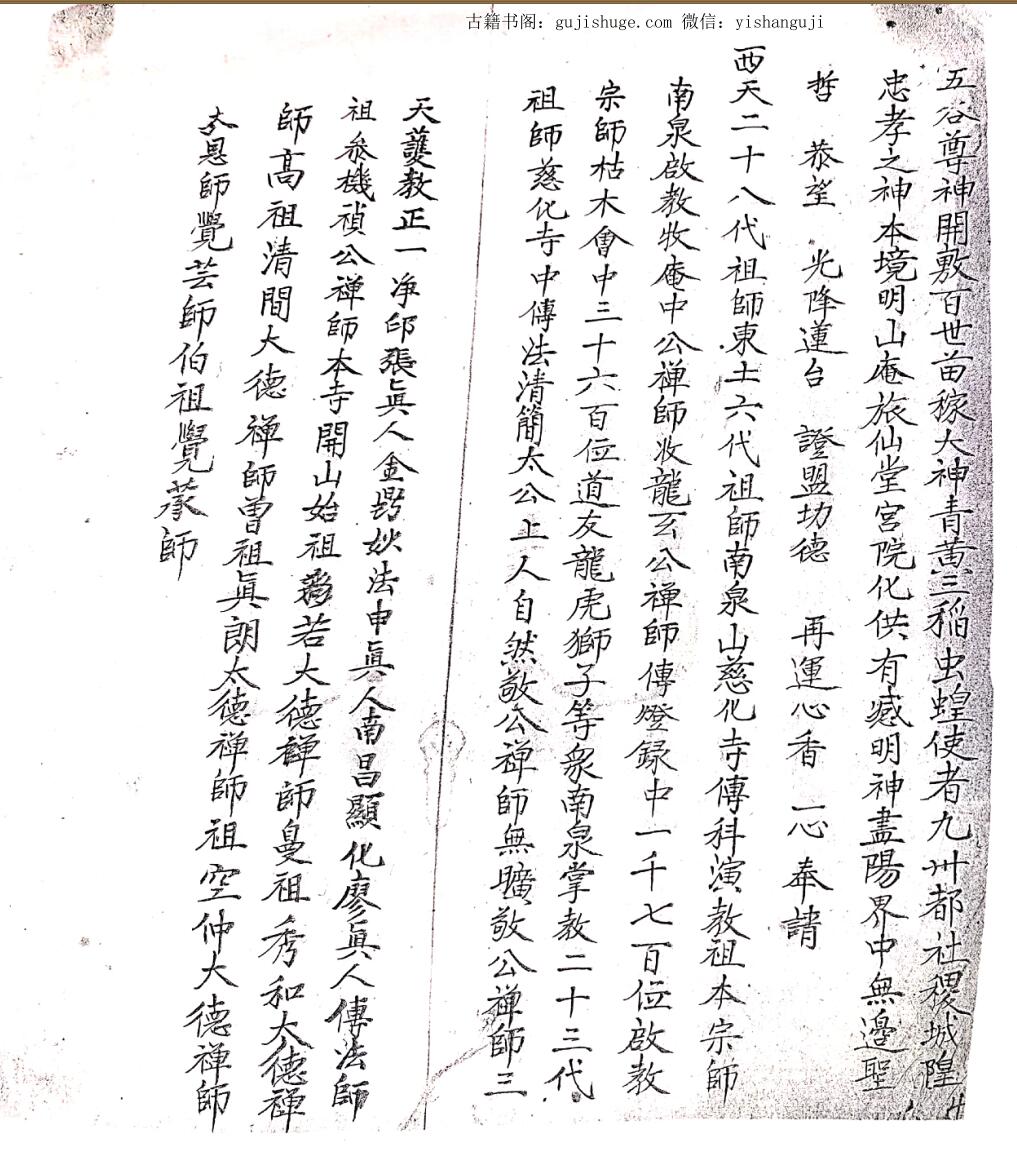 古籍书阁：gujishuge.com 微信：yishanguji
五谷尊神開敷百世苗稼大神青黄三稲虫蝗使者九州都社稷城隍
忠孝之神本境明山庵旅仙堂宮院化供有感明神盡陽界中無邊聖
哲 恭望 光降蓮台 證盟功德 再運心香 一心奉請
西天二十八代祖師東土六代祖師南泉山慈化寺傳科演教祖本宗師
南泉啟教牧庵中公禅師收龍玄公禅師傳燈録中一千七百位啟教
宗師枯木會中三十六百位道友龍虎獅子等衆南泉掌教二十三代
祖師慈化寺中傳法清簡太公上人自然敬公禅師無曠敬公禅師三
天護教正一净邱張真人金妙法申真人南昌顯化廖真人傳法師
祖叅機禎公禅師本寺開山始祖若大德禅師曼祖秀和大德禅
師高祖清間大德禅師曽祖真朗太德禅師祖空仲大德禅師
太恩師覺芸師伯祖覺師